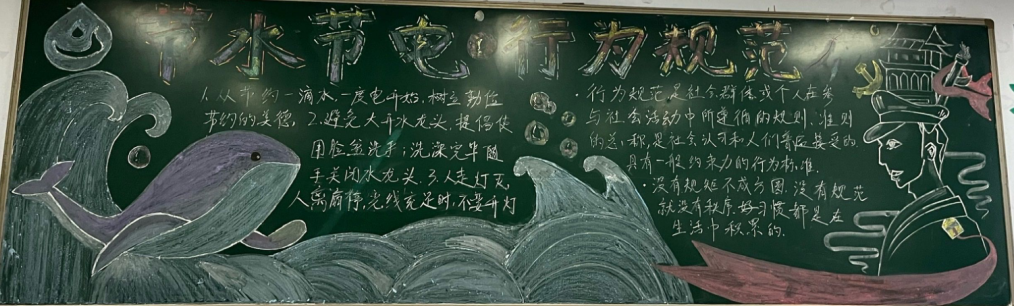 节水节电 行为规范
1.从节约一滴水一度电开始,树立勤俭
节约的美德,2.避免大开水龙头,提倡使
用脸盆洗手;洗漱完毕随
手关闭水龙头.3.人走灯灭,
人离扇停,光线充足时,不要开灯
·行为规范是社会群体或个人在参
与社会活动中所遵循的规则、准则
的总称,是社会认可和人们普遍接受的
具有一般约束力的行为标准.
·没有规矩不成方圆.没有规范
就没有秩序.好习惯都是在
生活中积累的.